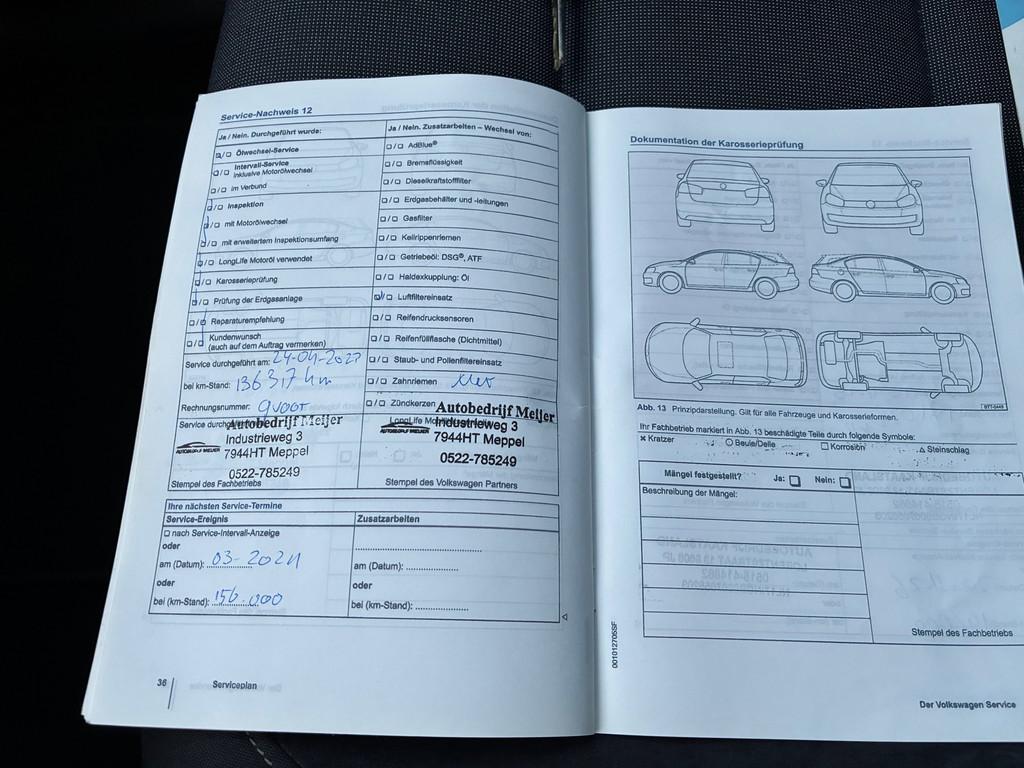 Service-Nachweis 12
Ja / Nein. Durchgeführt wurde:
Ölwechsel-Service
Intervall-Service
inklusive Motorölwechsel
im Verbund
Inspektion
mit Motorölwechsel
mit erweitertem Inspektionsumfang
LongLife Motoröl verwendet
Karosserieprüfung
Prüfung der Erdgasanlage
Reparaturempfehlung
Kundenwunsch
(auch auf dem Auftrag vermerken)
Service durchgeführt am:
bei km-Stand:
Rechnungsnummer:
Ja / Nein. Zusatzarbeiten – Wechsel von:
AdBlue®
Bremsflüssigkeit
Dieselkraftstofffilter
Erdgasbehälter und -leitungen
Gasfilter
Keilrippenriemen
Getriebeöl: DSG®, ATF
Haldexkupplung: Öl
Luftfiltereinsatz
Reifendrucksensoren
Reifenfüllflasche (Dichtmittel)
Staub- und Pollenfiltereinsatz
Zahnriemen
Zündkerzen
Autobedrijf Meijer
Industrieweg 3
7944HT Meppel
0522-785249
Stempel des Fachbetriebs
Autobedrijf Meijer
Industrieweg 3
7944HT Meppel
0522-785249
Stempel des Volkswagen Partners
Ihre nächsten Service-Termine
Service-Ereignis
nach Service-Intervall-Anzeige
oder
am (Datum): 03-2024
oder
bei (km-Stand): 150.000
Zusatzarbeiten
am (Datum):
oder
bei (km-Stand):
36 Serviceplan
Dokumentation der Karosserieprüfung
B7T-0449
Abb. 13 Prinzipdarstellung. Gilt für alle Fahrzeuge und Karosserieformen.
Ihr Fachbetrieb markiert in Abb. 13 beschädigte Teile durch folgende Symbole:
Kratzer Beule/Delle Korrosion Steinschlag
Mängel festgestellt? Ja: Nein:
Beschreibung der Mängel:
Stempel des Fachbetriebs
001012705SF
Der Volkswagen Service